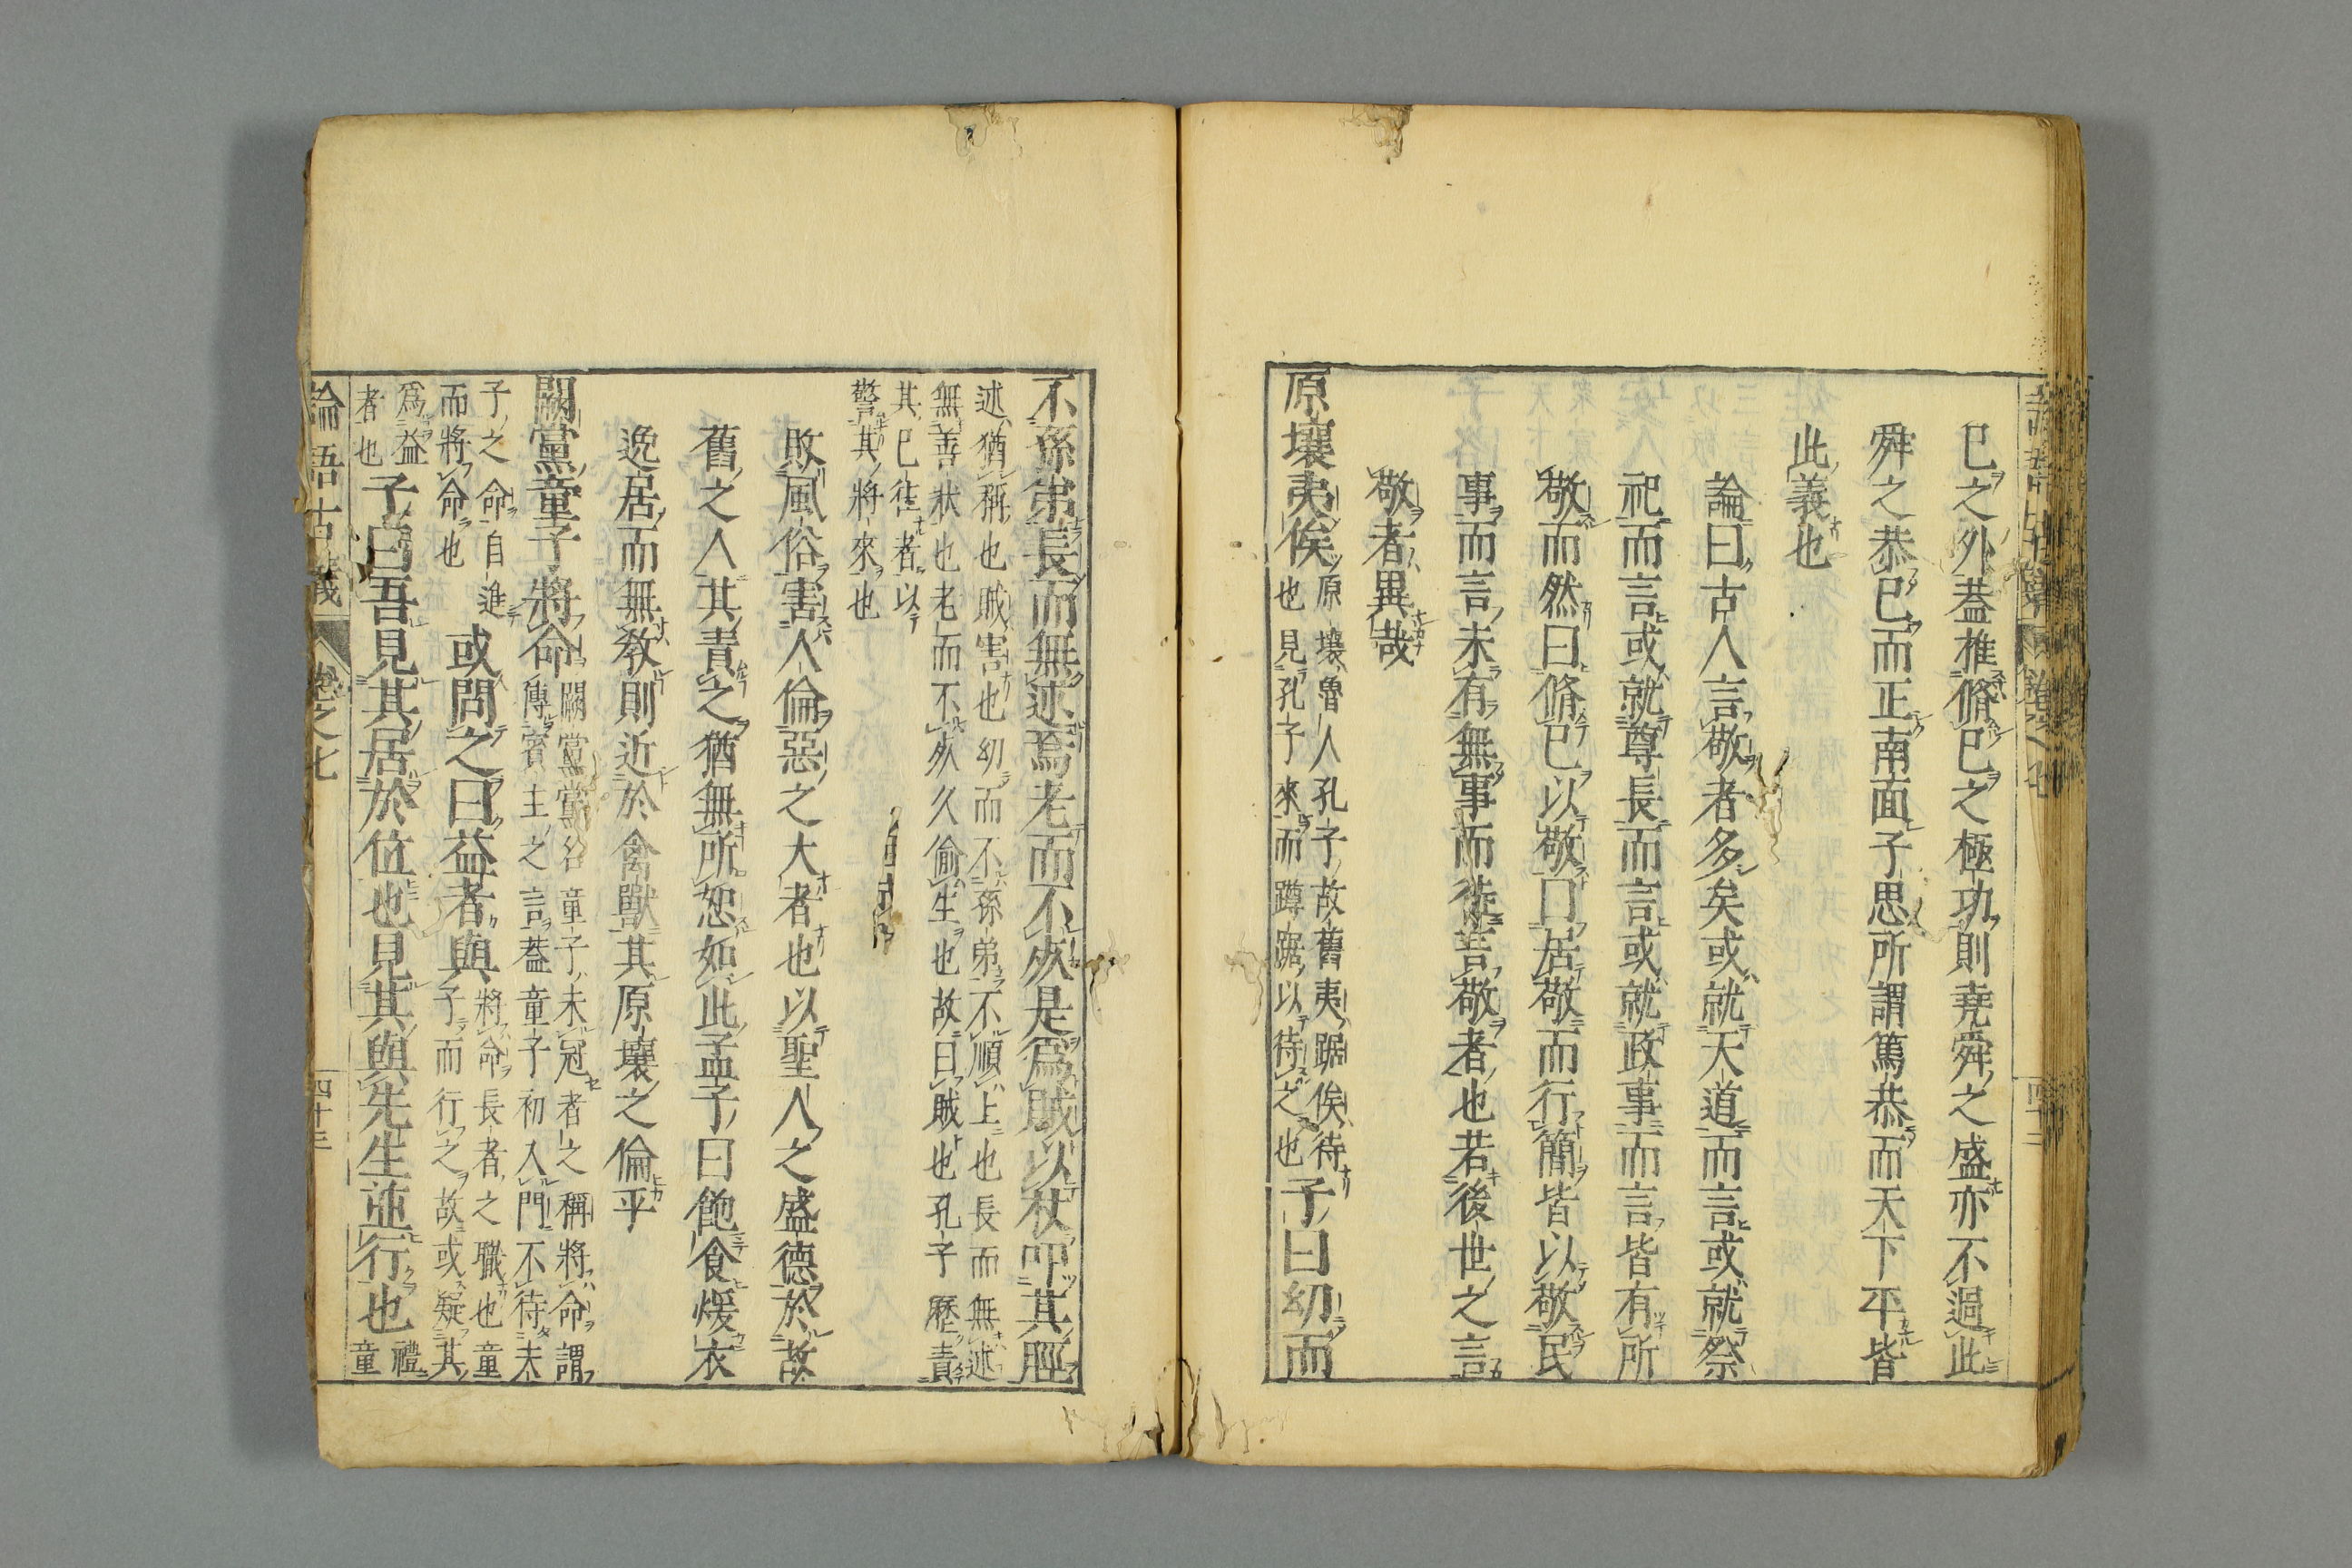 巳之外葢推脩巳之極功則堯舜之盛亦不過此
舜之恭巳而正南面子思所謂篤恭而天下平皆
此義也
論曰古人言敬者多矣或就天道而言或就祭
祀而言或就尊長而言或就政事而言皆有所
敬而然曰脩巳以敬曰居敬而行簡皆以敬民
事而言未有無事而徒言敬者也若後世之言
敬者異哉
原壤夷俟原壤魯人孔子故舊夷踞俟待
也見孔子來而蹲踞以待之也子曰幼而
不孫弟長而無述焉老而不死是爲賊以杖叩其脛
述猶稱也賊害也幼而不孫弟不順上也長而無述
無善狀也老而不死久偷生也故曰賊也孔子歷責
其巳往者以
警其將來也
敗風俗害人倫惡之大者也以聖人之盛德於故
舊之人其責之猶無所恕如此孟子曰飽食煖衣
逸居而無教則近於禽獸其原壤之倫乎
闕黨童子將命闕黨黨名童子未冠者之稱將命謂
傳賓主之言葢童子初入門不待夫
子之命自進
而將命也
或問之曰益者與將命長者之職也童
子而行之故或疑其
爲益
者也
子曰吾見其居於位也見其與先生並行也禮
童
論語古義 卷之七 四十三